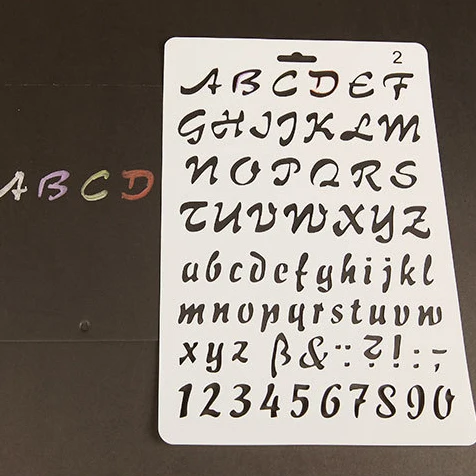 2
ABCDEF
GHIJKLM
NOPQRS
TUVWXYZ
abcdefghijkl
mnopqrstuvw
xyz ß&:¨?!:;-
1234567890
ABCD